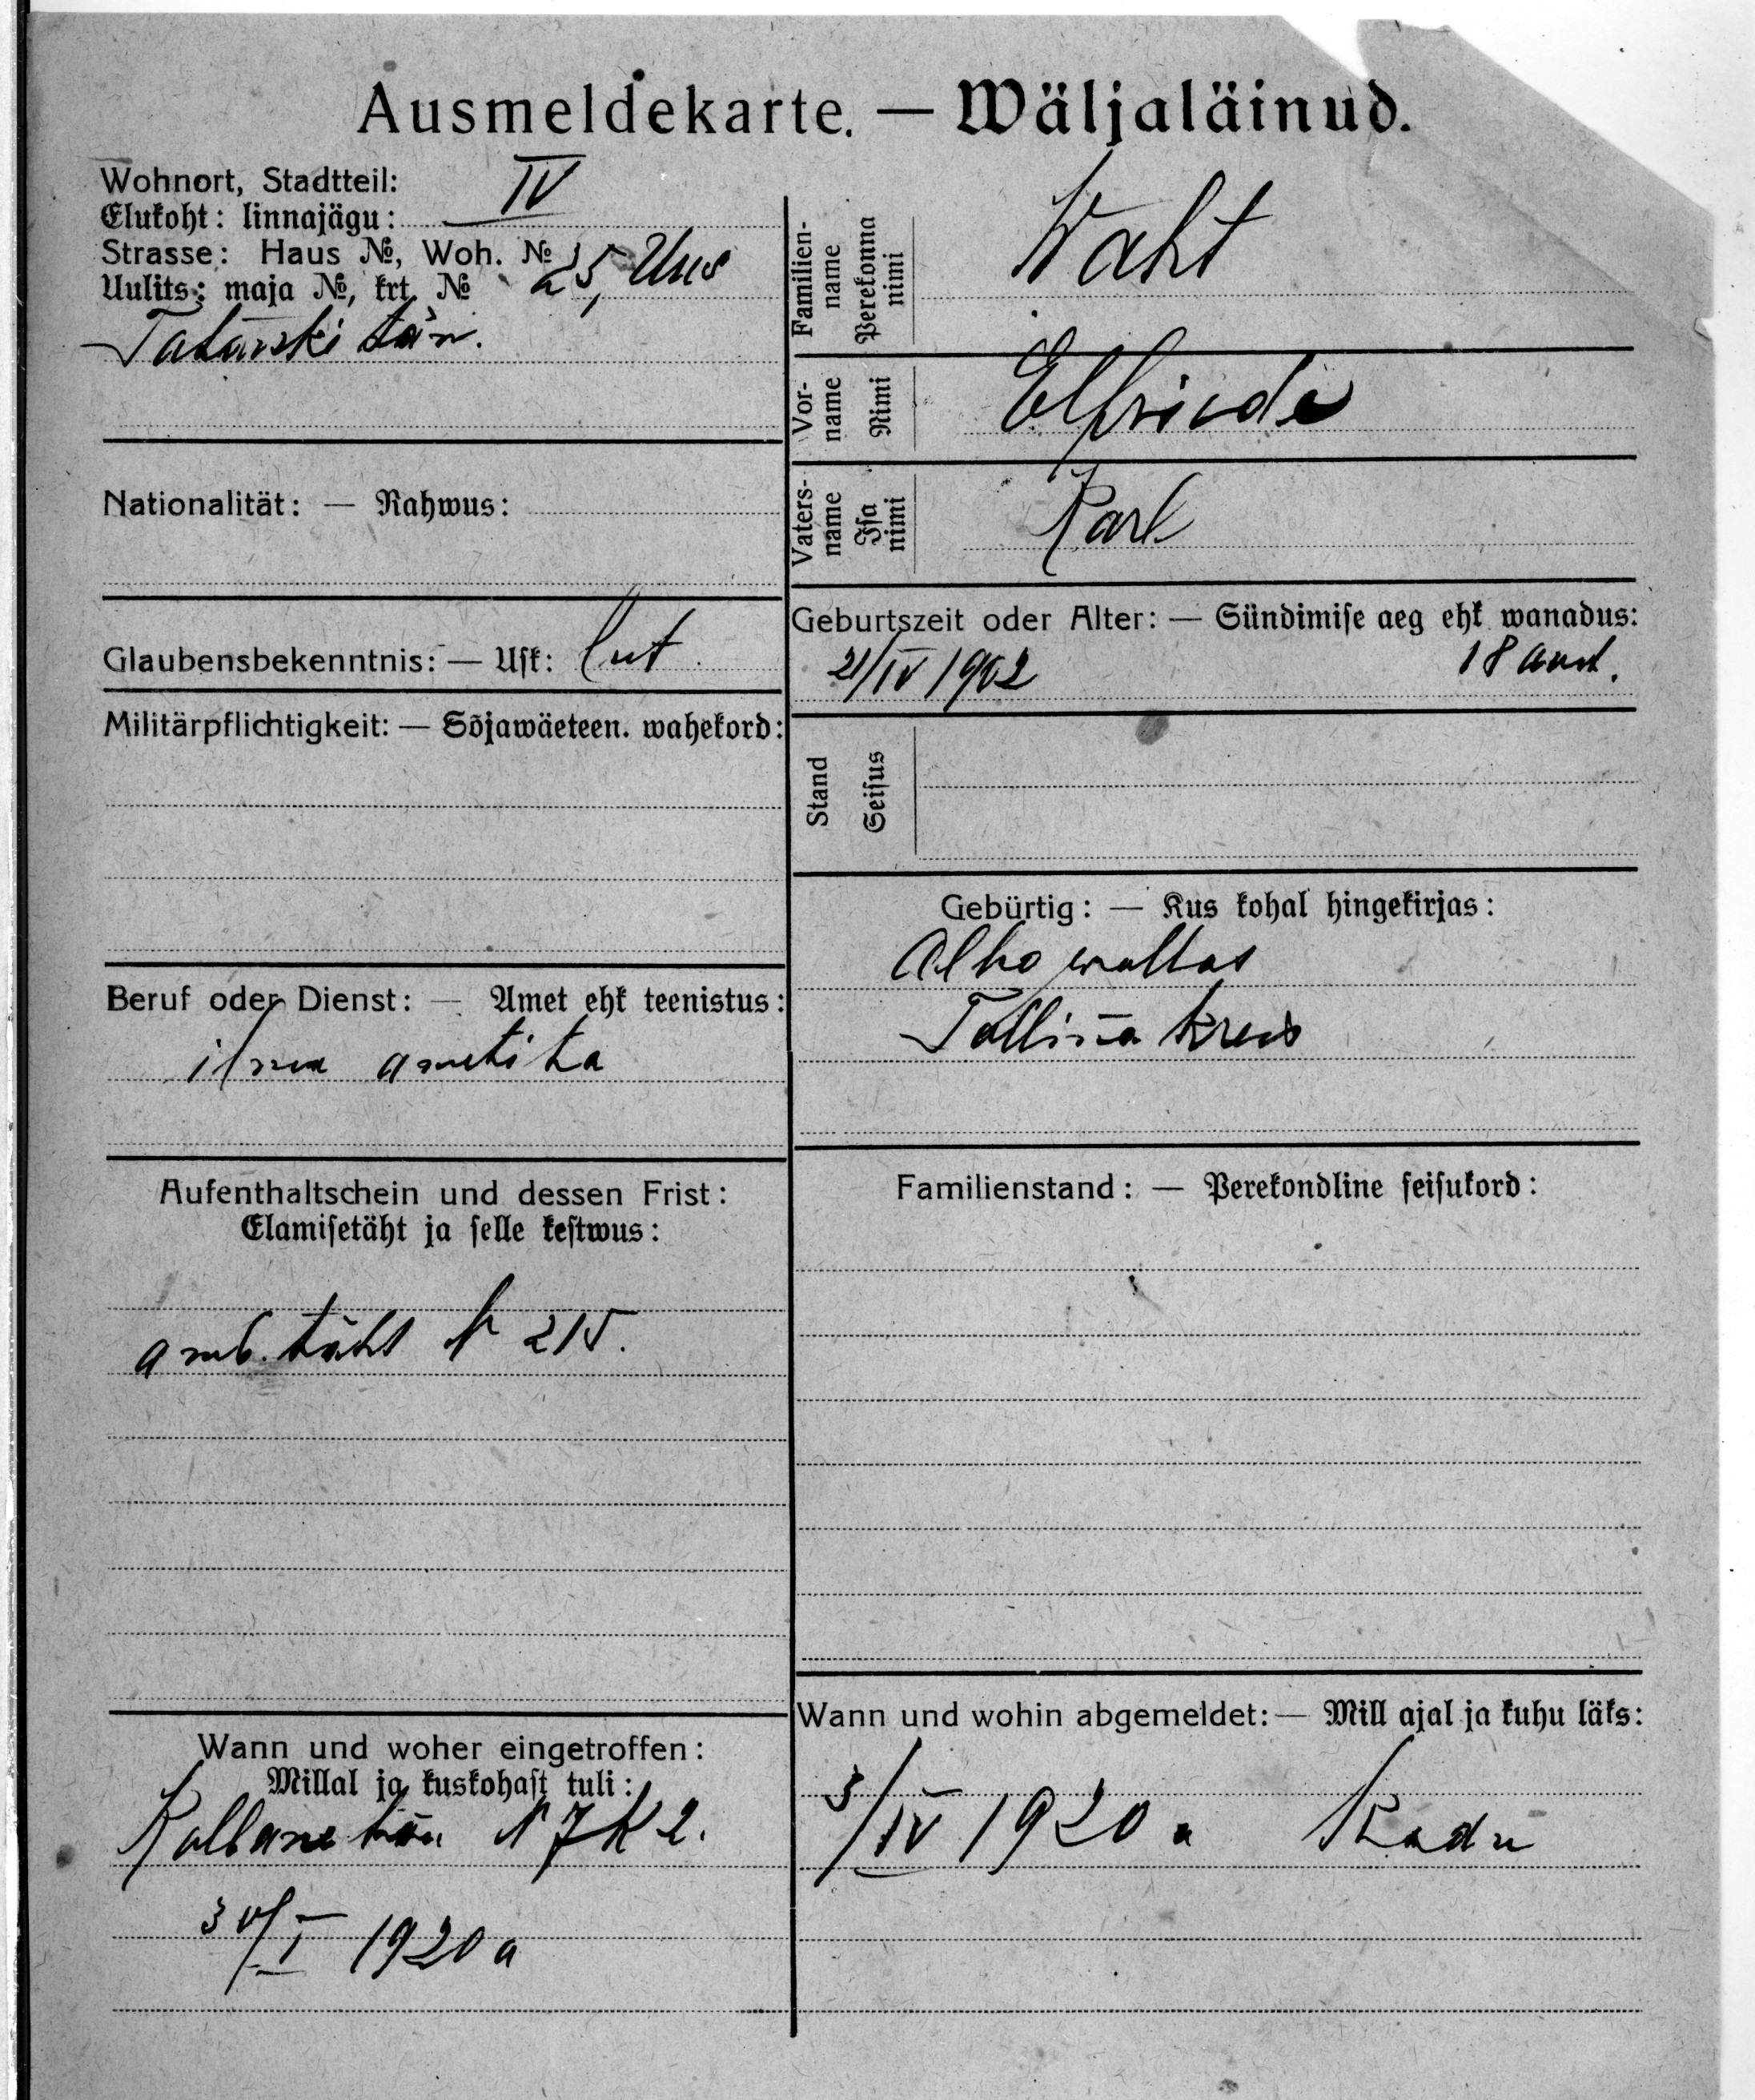 Ausmeldekarte. — Wäljaläinud.
Wohnort, Stadtteil:
Elukoht: linnajägu: IV
Strasse: Haus №, Woh. №
Uulits: maja №, krt. № 25, Uus
Tatarski tän.
Familien-name Perekonna nimi
Waht
Vor-name Nimi
Elfriede
Vaters-name Isa nimi
Karl
Nationalität: — Rahwus:
Glaubensbekenntnis: — Usk: lut
Geburtszeit oder Alter: — Sündimise aeg ehk wanadus:
21/IV 1902 18 aast.
Militärpflichtigkeit: — Sõjawäeteen. wahekord:
Stand Seisus
Gebürtig: — Kus kohal hingekirjas:
wallas
Tallina kreis
Beruf oder Dienst: — Amet ehk teenistus:
ilma ametita
Aufenthaltschein und dessen Frist:
Elamisetäht ja selle kestwus:
täht N 215.
Familienstand: — Perekondline seisukord:
Wann und woher eingetroffen:
Millal ja kuskohast tuli:
tän N 7 K 2.
30/I 1920 a
Wann und wohin abgemeldet: — Mill ajal ja kuhu läks:
3/IV 1920 a